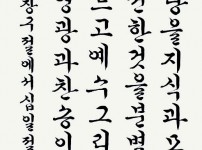 랑을지식과모
한것을분별
르고예수그리
영광과찬송이
장구절에서십일절